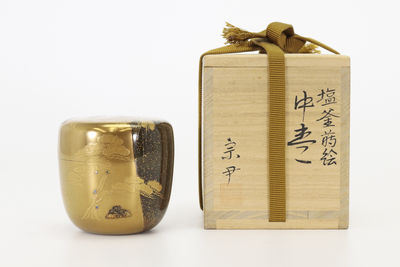 塩釜蒔絵
中棗
宗尹